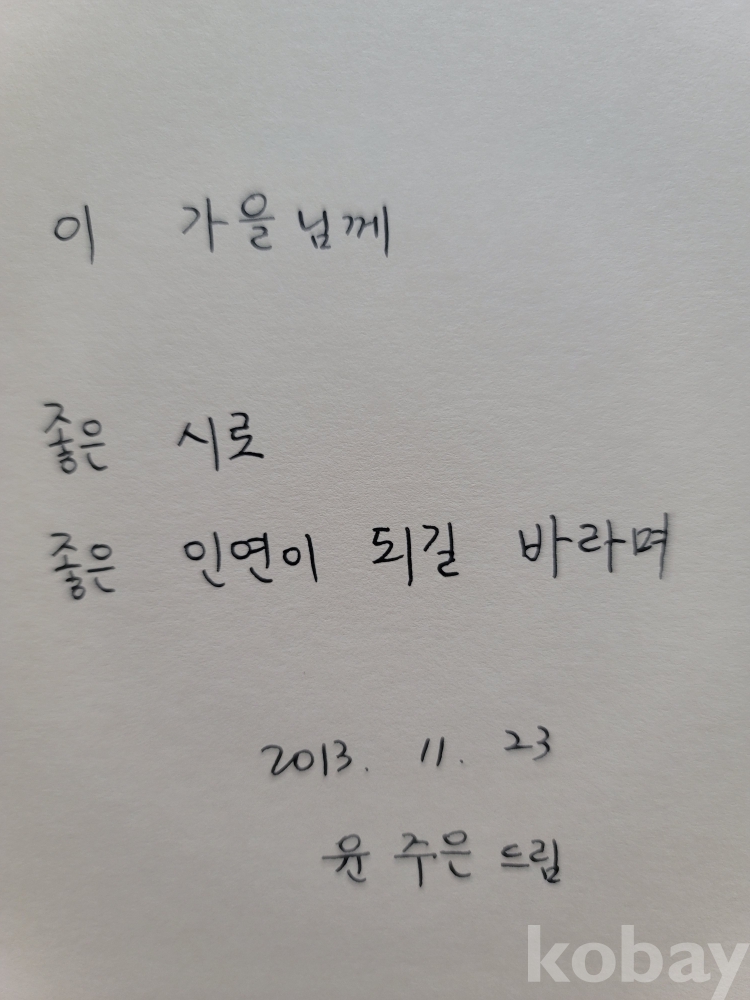 이 가을님께
좋은 시로
좋은 인연이 되길 바라며
2013. 11. 23
윤 주은 드림
kobay